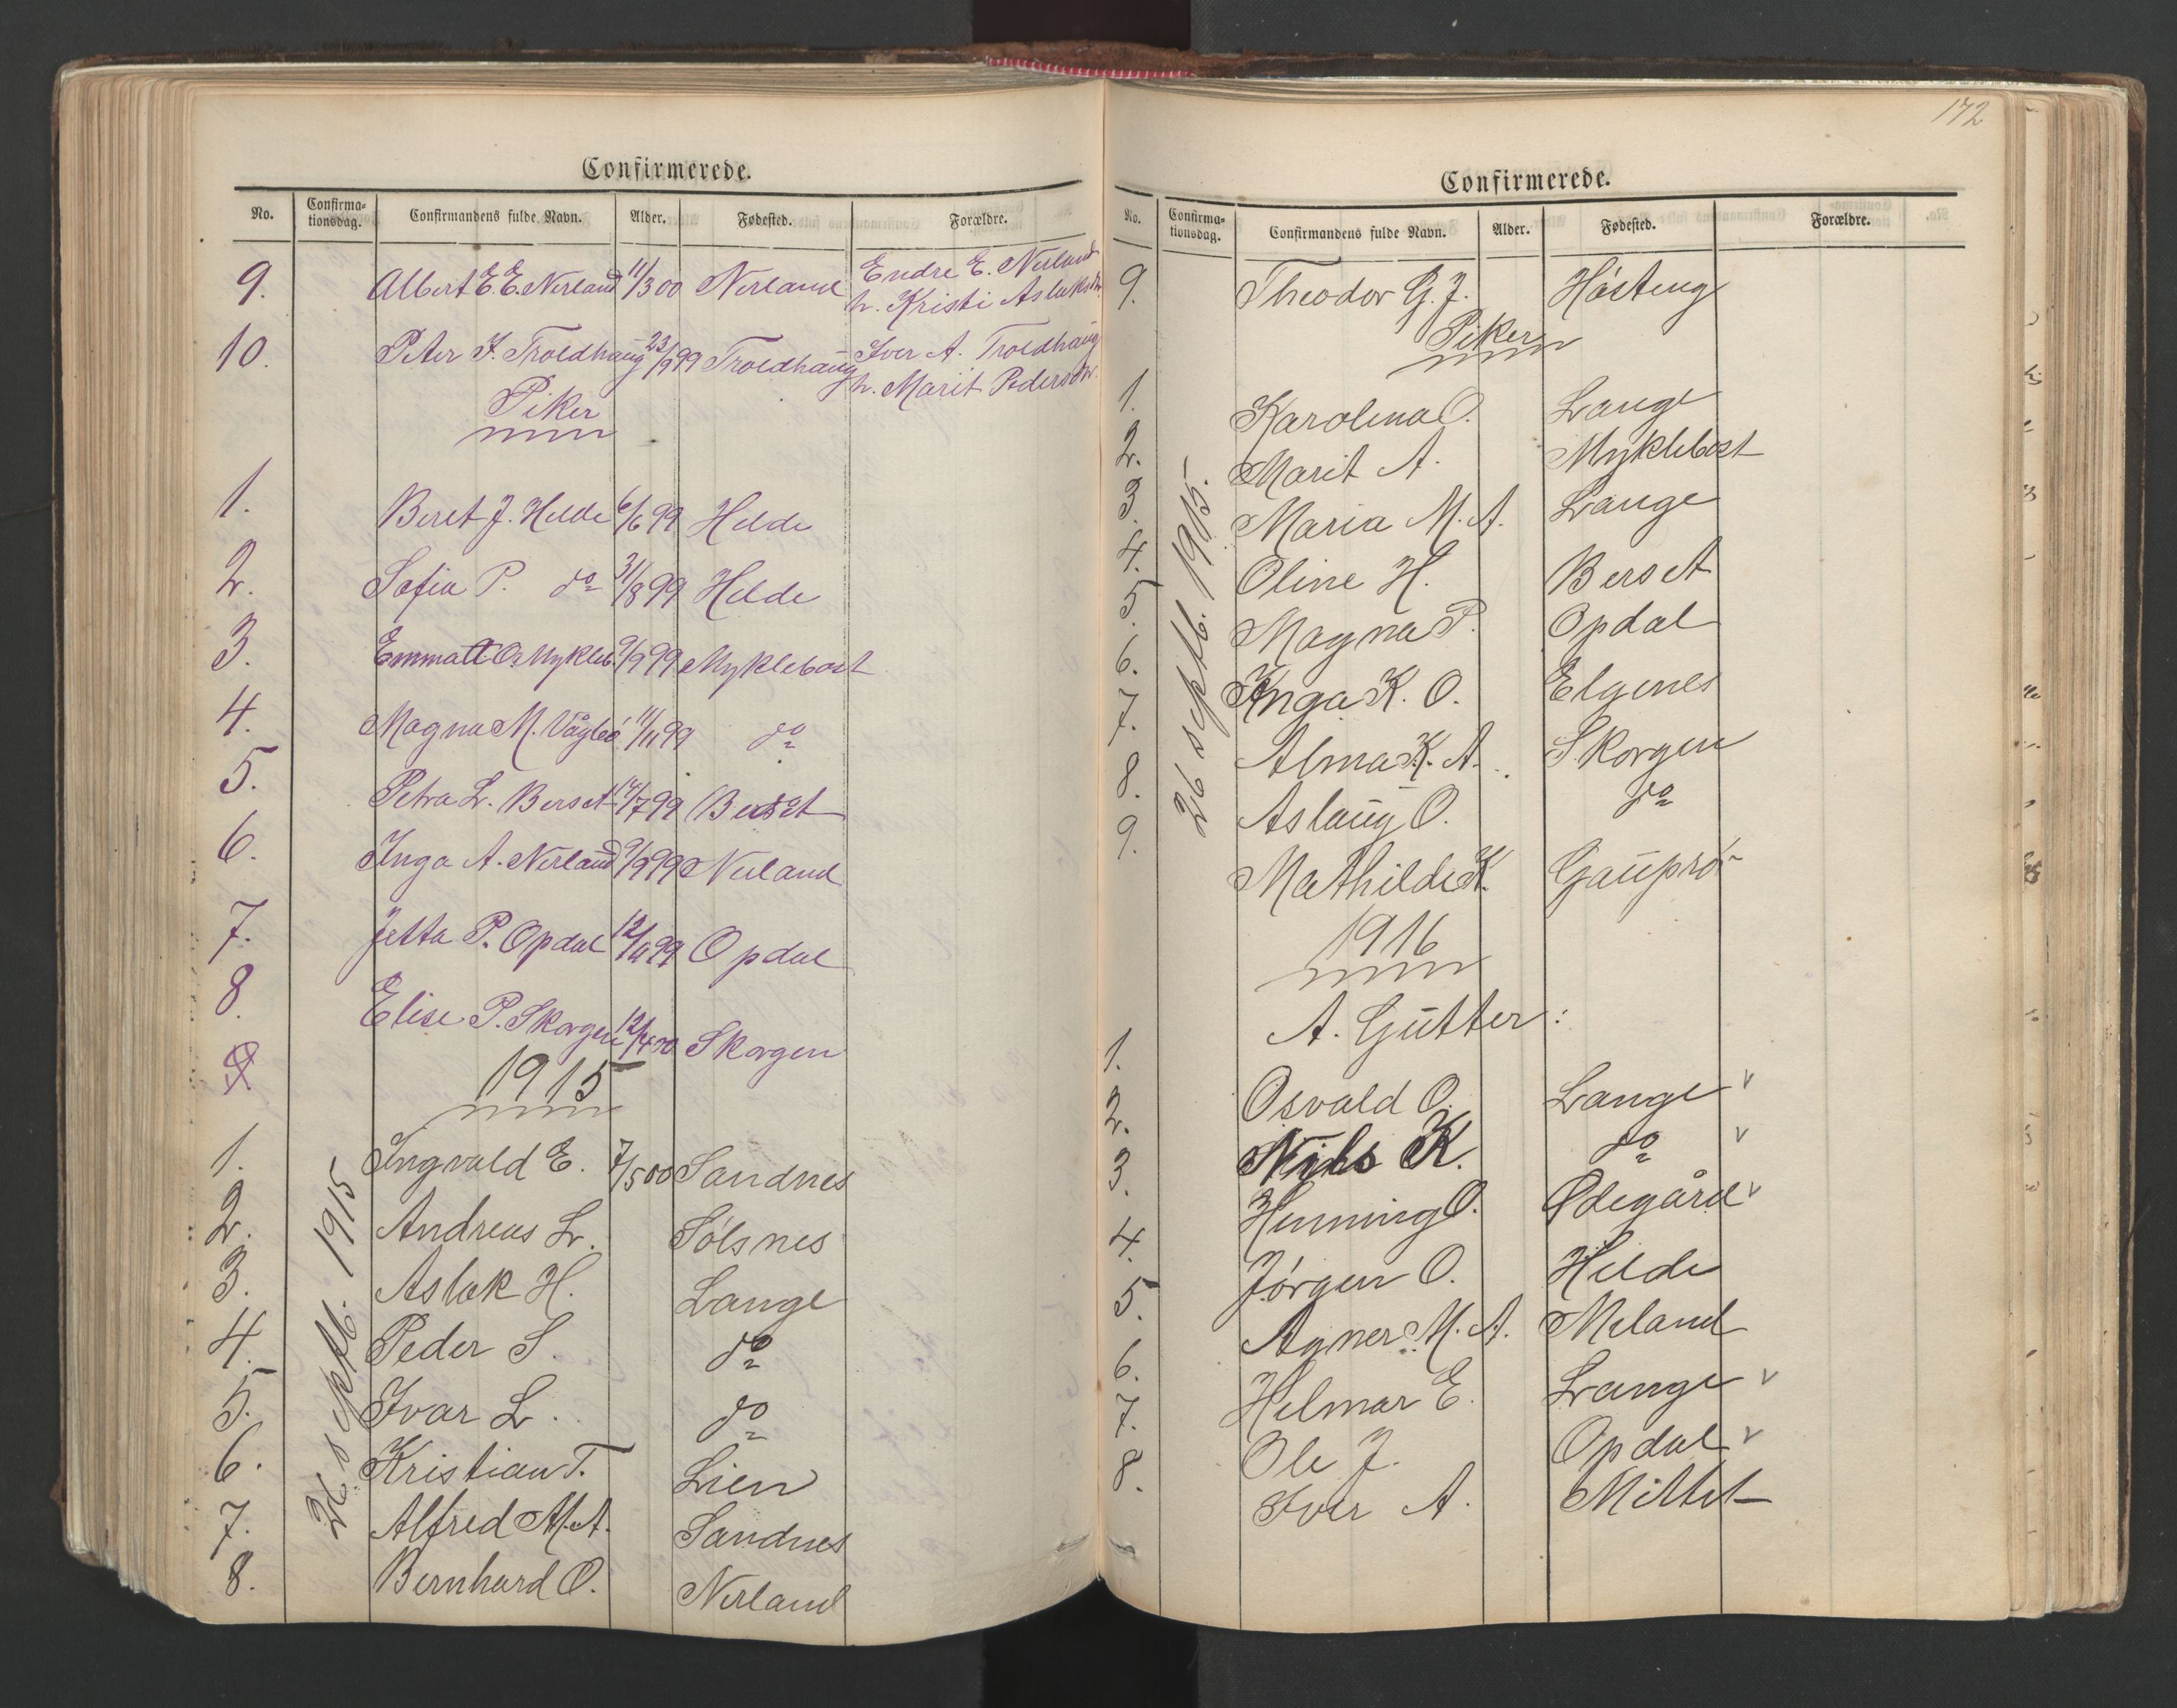 Confirmerede.
No. Confirma-tionsdag. Confirmandens fulde Navn. Alder. Fødested. Forældre.
9. Albert E. E. Nerland 11/3 00 Nerland Endre E. Nerland
h. Kristi Aslaksdtr.
10. Peter I. Troldhaug 23/9 99 Troldhaug Iver A. Troldhaug
h. Marit Pedersdtr.
Piker
1. Beret J. Helde 6/6 99 Helde
2. Sofia P. do 31/8 99 Helde
3. Emma O. Mykleb. 9/9 99 Myklebost
4. Magna M. Vågbö 11/11 99 do
5. Petra L. Berset 14/7 99 Berset
6. Inga A. Nerland 9/9 99 Nerland
7. Jetta P. Opdal 12/11 99 Opdal
8. Elise P. Skorgen 12/4 00 Skorgen
9.
1915
26 septb. 1915
1. Ingvald E. 7/5 00 Sandnes
2. Andreas L. Sölsnes
3. Aslak H. Lange
4. Peder S. do
5. Ivar L. do
6. Kristian T. Lien
7. Alfred M. A. Sandnes
8. Bernhard O. Nerland
172
Confirmerede.
No. Confirma-tionsdag. Confirmandens fulde Navn. Alder. Fødested. Forældre.
9. Theodor G. J. Hösteng
Piker
26 septb. 1915.
1. Karolina O. Lange
2. Marit A. Myklebost
3. Maria M. A. Lange
4. Oline H. Berset
5. Magna P. Opdal
6. Inga K. O. Elgenes
7. Alma K. A. Skorgen
8. Aslaug O. do
9. Mathilde K. Gauprö
1916
A. Gutter:
1. Osvald O. Lange v
2. Nils K. do v
3. Henning O. Ødegård v
4. Jörgen O. Helde
5. Agner M. A. Meland
6. Helmar E. Lange v
7. Ole J. Opdal v
8. Iver A. Mittet